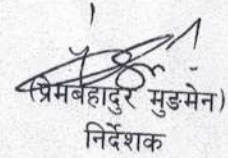 (प्रेमबहादुर मुङमेन)
निर्देशक